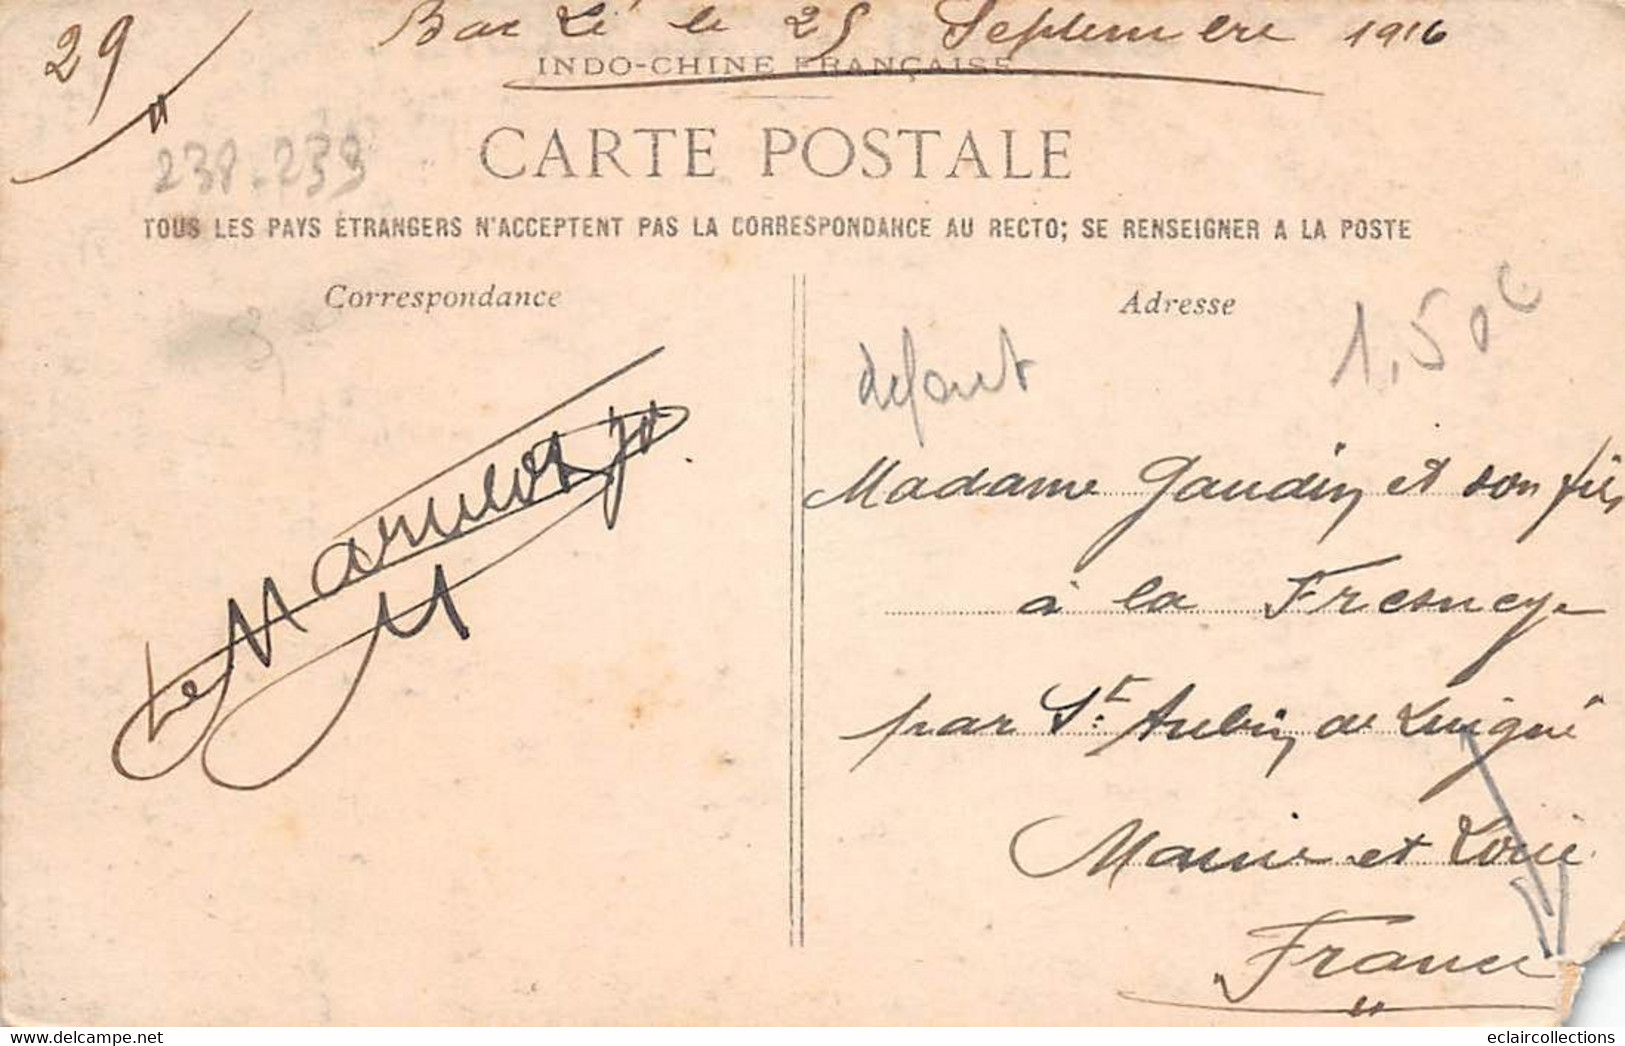 29 "
Bac Lé le 25 Septembre 1916
INDO-CHINE FRANÇAISE
CARTE POSTALE
238-239
TOUS LES PAYS ÉTRANGERS N'ACCEPTENT PAS LA CORRESPONDANCE AU RECTO; SE RENSEIGNER A LA POSTE
Correspondance
Adresse
1,50€
defaut
Madame Gaudin et son fils
à la Fresneye
par St: Aubin de Luigné
Maine et Loire
France
eclaircollections